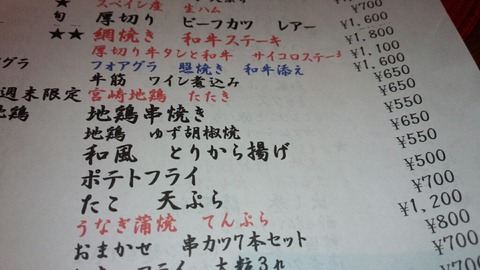 スペイン産 生ハム ¥700
旬 厚切り ビーフカツ レアー ¥1,600
★★ 網焼き 和牛ステーキ ¥1,800
厚切り牛タンと和牛 サイコロステーキ ¥1,100
フォアグラ 照焼き 和牛添え ¥1,600
牛筋 ワイン煮込み ¥650
週末限定 宮崎地鶏 たたき ¥650
地鶏 地鶏串焼き ¥550
地鶏 ゆず胡椒焼 ¥650
和風 とりから揚げ ¥550
ポテトフライ ¥500
たこ 天ぷら ¥700
うなぎ蒲焼 てんぷら ¥1,200
おまかせ 串カツ7本セット ¥800
フライ 大粒3ヶ ¥700
¥700